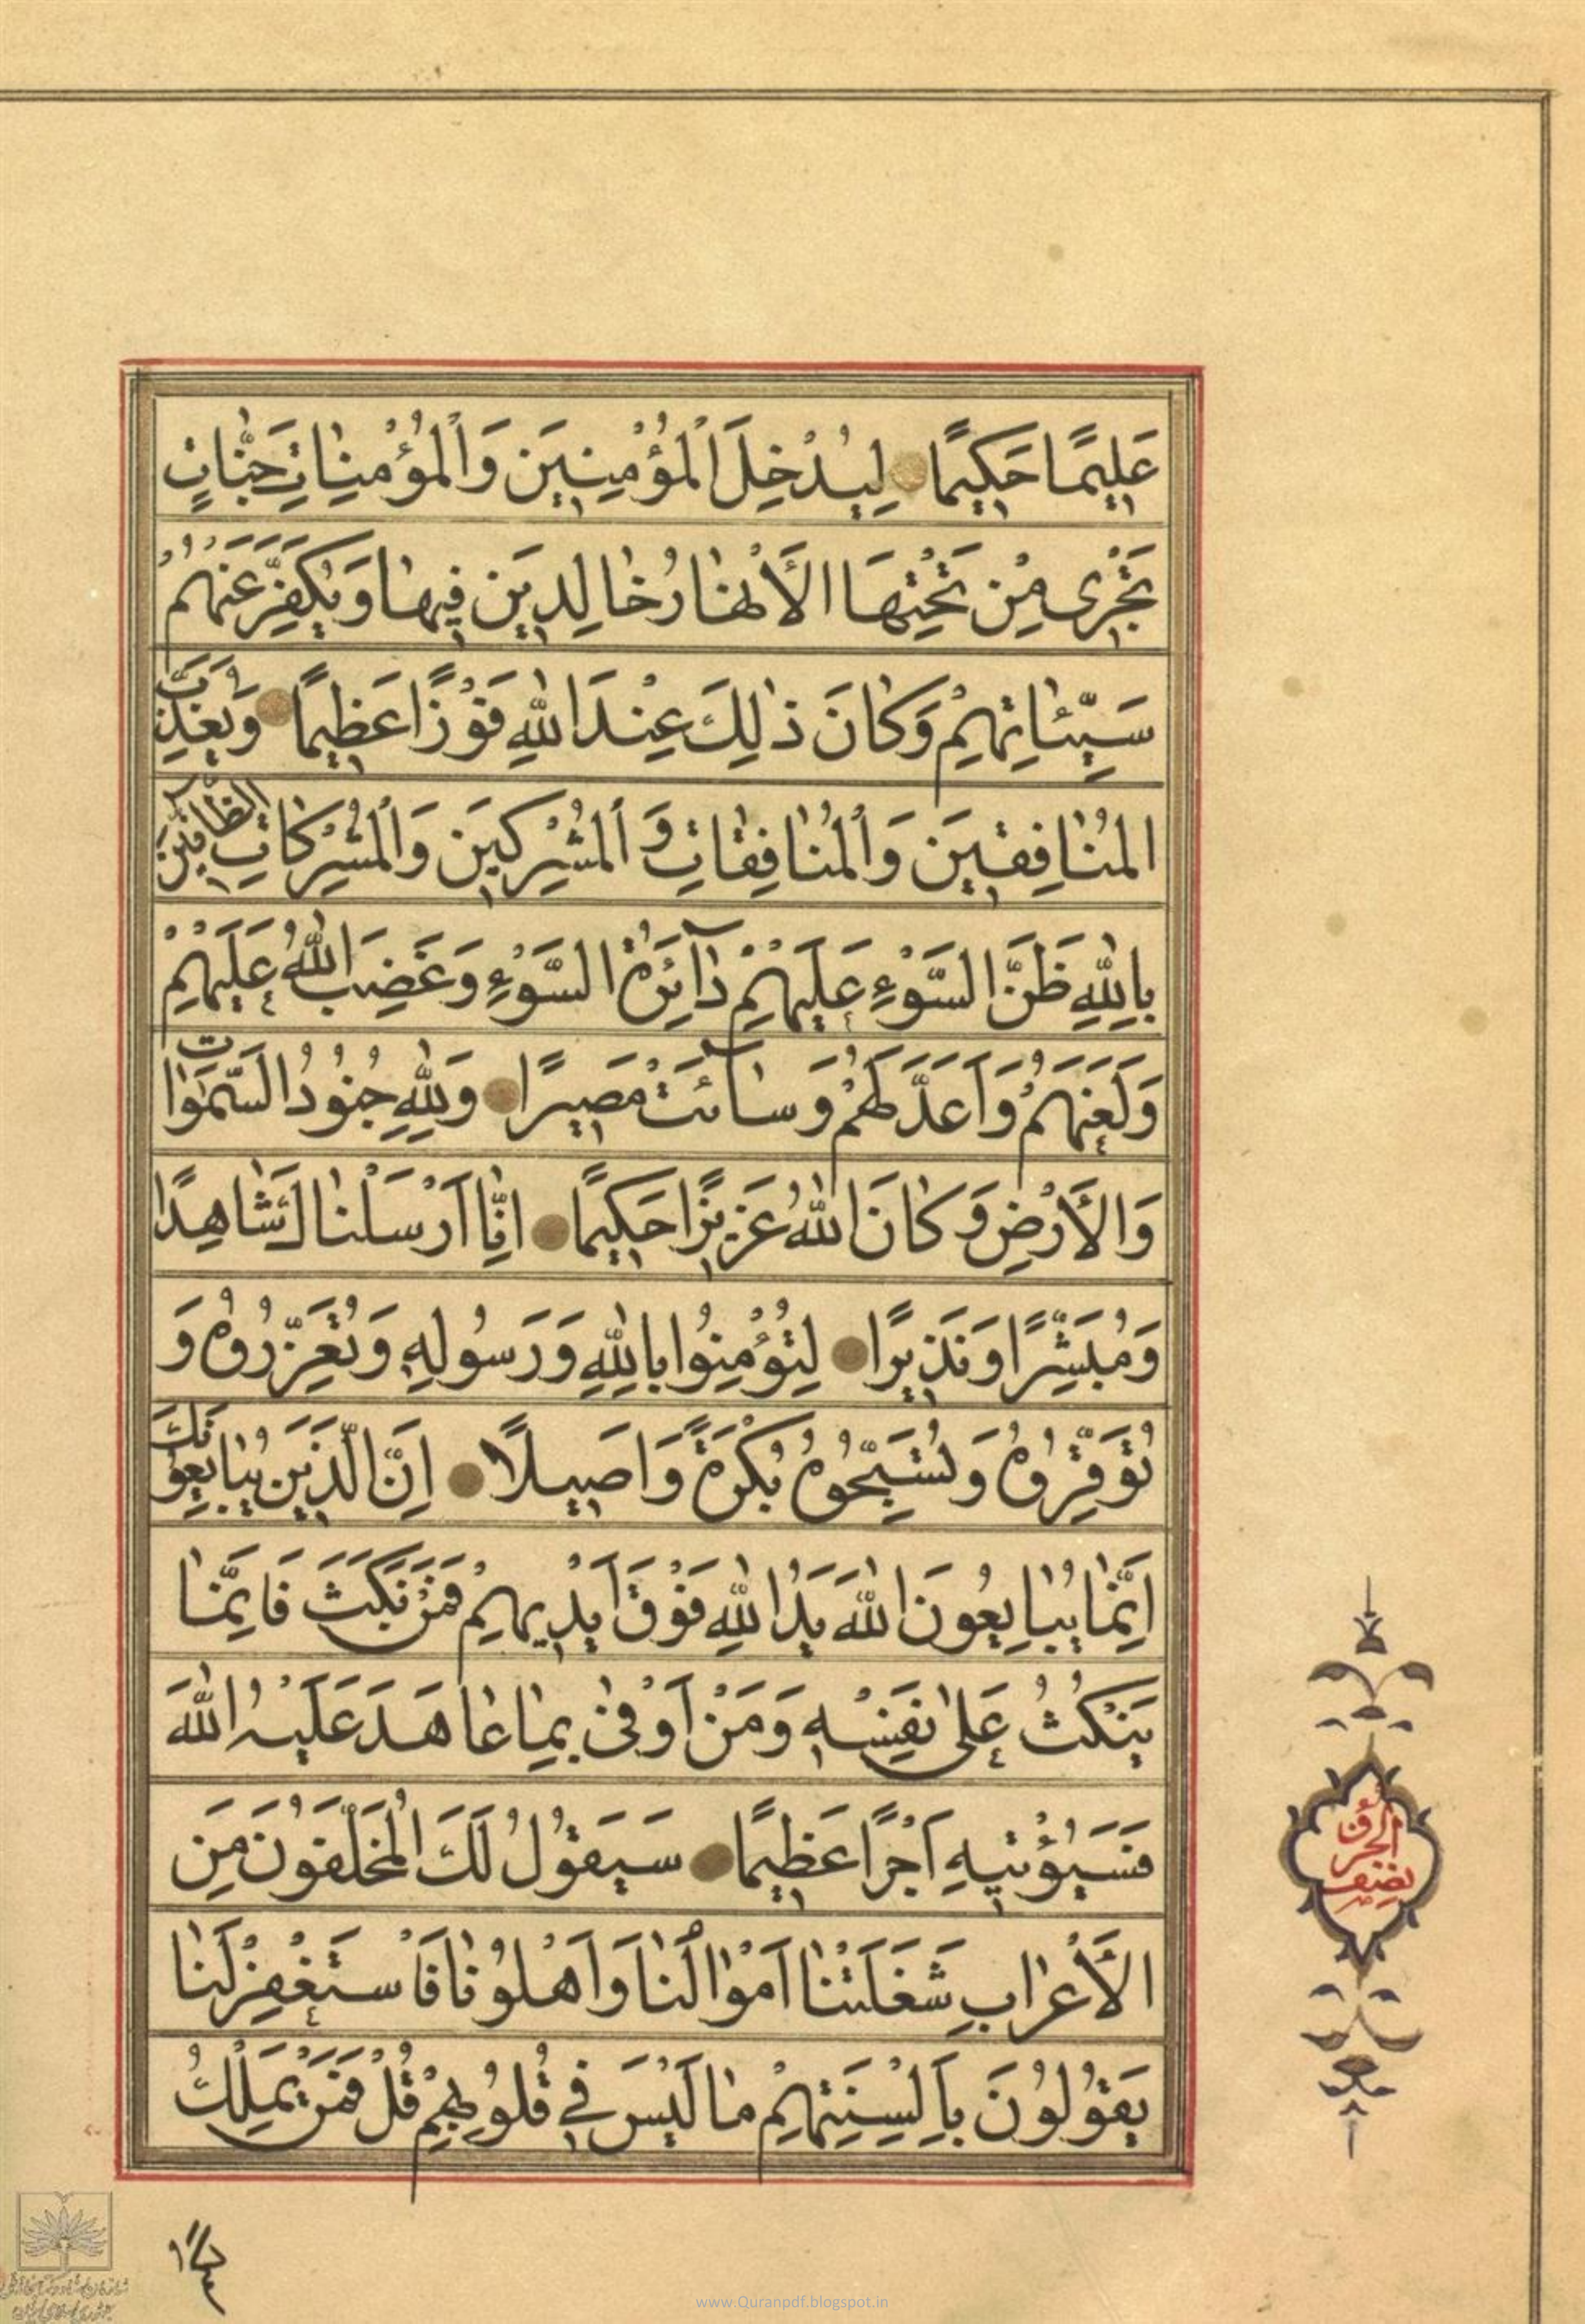 عَلِيمًا حَكِيمًا لِيُدْخِلَ الْمُؤْمِنِينَ وَالْمُؤْمِنَاتِ جَنَّاتٍ
تَجْرِي مِنْ تَحْتِهَا الْأَنْهَارُ خَالِدِينَ فِيهَا وَيُكَفِّرَ عَنْهُمْ
سَيِّئَاتِهِمْ وَكَانَ ذٰلِكَ عِنْدَ اللّٰهِ فَوْزًا عَظِيمًا وَيُعَذِّبَ
الْمُنَافِقِينَ وَالْمُنَافِقَاتِ وَالْمُشْرِكِينَ وَالْمُشْرِكَاتِ الظَّانِّينَ
بِاللّٰهِ ظَنَّ السَّوْءِ عَلَيْهِمْ دَآئِرَةُ السَّوْءِ وَغَضِبَ اللّٰهُ عَلَيْهِمْ
وَلَعَنَهُمْ وَاَعَدَّ لَهُمْ وَسَآئَتْ مَصِيرًا وَلِلّٰهِ جُنُودُ السَّمٰوَاتِ
وَالْأَرْضِ وَكَانَ اللّٰهُ عَزِيزًا حَكِيمًا اِنَّا اَرْسَلْنَاكَ شَاهِدًا
وَمُبَشِّرًا وَنَذِيرًا لِتُؤْمِنُوا بِاللّٰهِ وَرَسُولِهِ وَتُعَزِّرُوهُ وَ
تُوَقِّرُوهُ وَتُسَبِّحُوهُ بُكْرَةً وَاَصِيلًا اِنَّ الَّذِينَ يُبَايِعُونَكَ
اِنَّمَا يُبَايِعُونَ اللّٰهَ يَدُ اللّٰهِ فَوْقَ اَيْدِيهِمْ فَمَنْ نَكَثَ فَاِنَّمَا
يَنْكُثُ عَلٰى نَفْسِهِ وَمَنْ اَوْفٰى بِمَا عَاهَدَ عَلَيْهُ اللّٰهَ
فَسَيُؤْتِيهِ اَجْرًا عَظِيمًا سَيَقُولُ لَكَ الْمُخَلَّفُونَ مِنَ
الْأَعْرَابِ شَغَلَتْنَا اَمْوَالُنَا وَاَهْلُونَا فَاسْتَغْفِرْ لَنَا
يَقُولُونَ بِاَلْسِنَتِهِمْ مَا لَيْسَ فِي قُلُوبِهِمْ قُلْ فَمَنْ يَمْلِكُ
نصف
الحزب
www.Quranpdf.blogspot.in